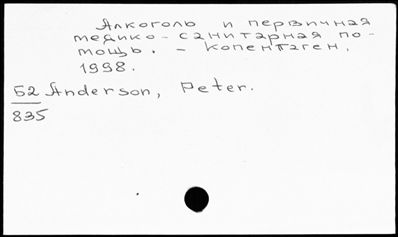 Алкоголь и первичная
медико-санитарная по-
мощь. - Копенгаген,
1998.
Б2 Anderson, Peter.
835